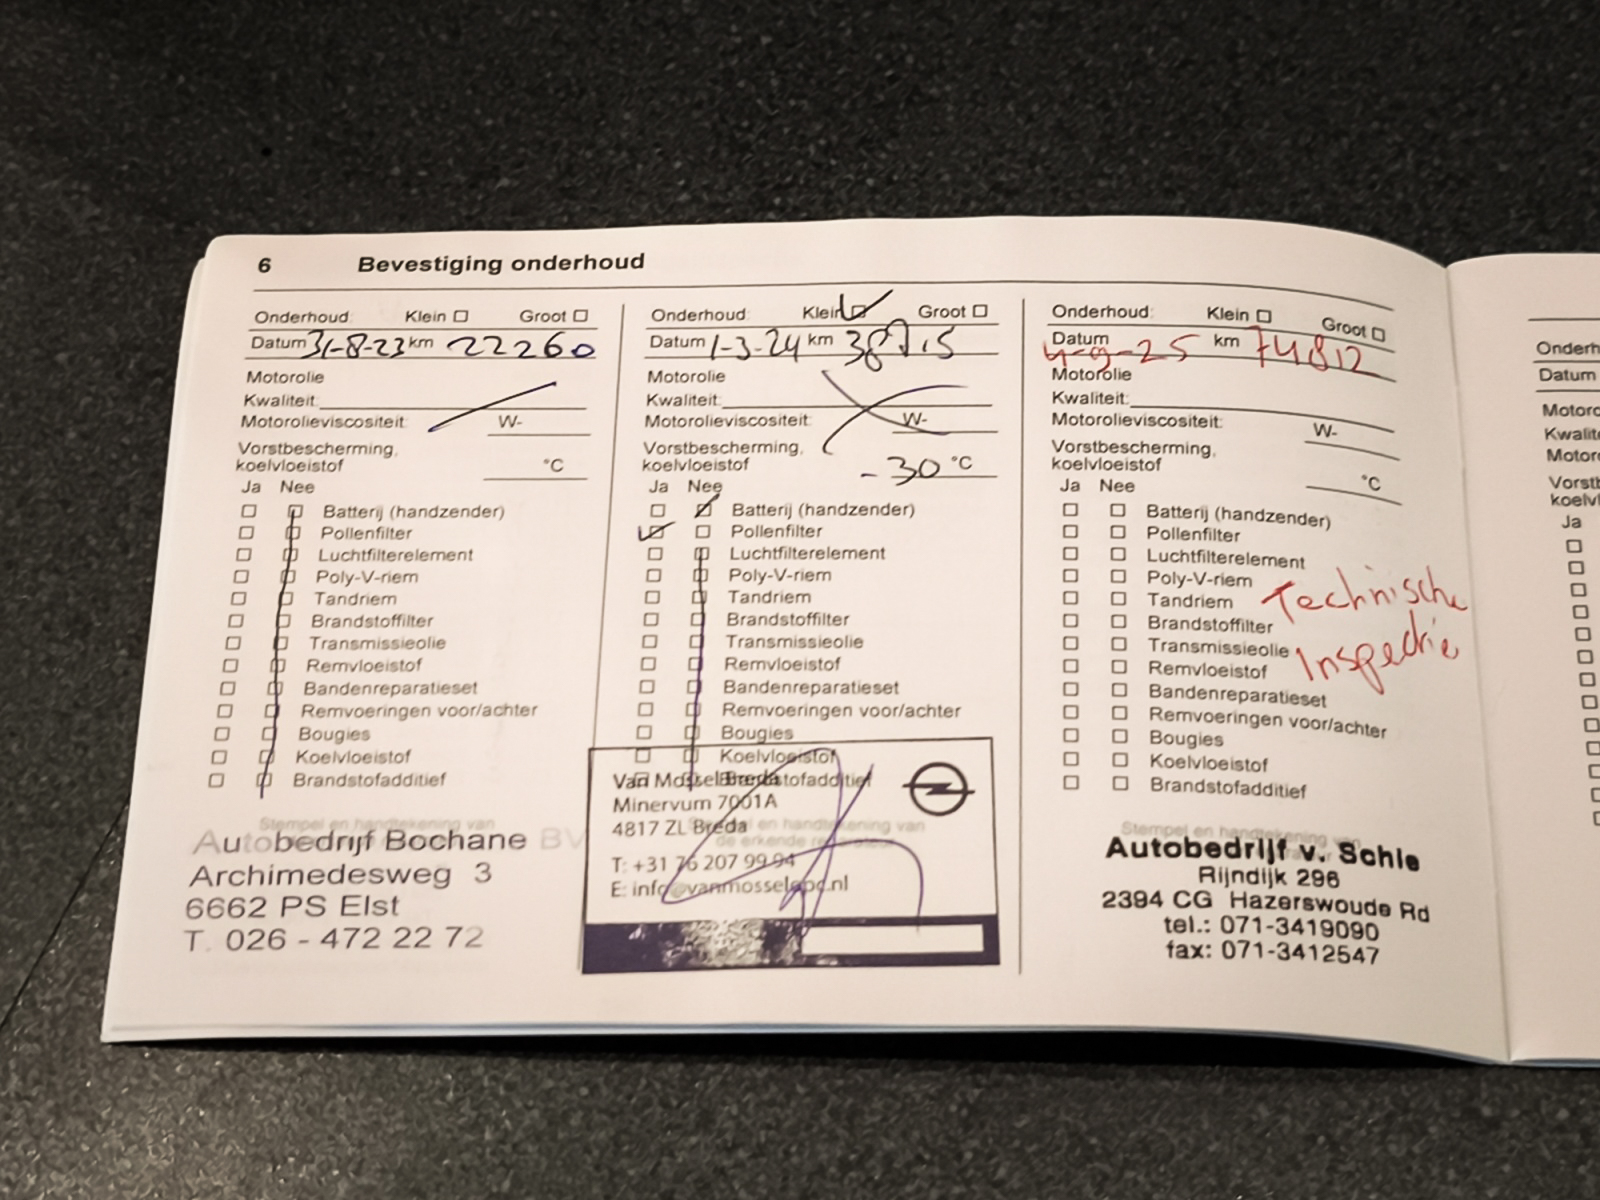 6 Bevestiging onderhoud
Onderhoud: Klein Groot
Datum 31-8-23 km 22260
Motorolie
Kwaliteit:
Motorolieviscositeit: W-
Vorstbescherming,
koelvloeistof °C
Ja Nee
Batterij (handzender)
Pollenfilter
Luchtfilterelement
Poly-V-riem
Tandriem
Brandstoffilter
Transmissieolie
Remvloeistof
Bandenreparatieset
Remvoeringen voor/achter
Bougies
Koelvloeistof
Brandstofadditief
Stempel en handtekening van
Autobedrijf Bochane BV
Archimedesweg 3
6662 PS Elst
T. 026 - 472 22 72
Onderhoud: Klein Groot
Datum 1-3-24 km
Motorolie
Kwaliteit:
Motorolieviscositeit: W-
Vorstbescherming,
koelvloeistof -30 °C
Ja Nee
Batterij (handzender)
Pollenfilter
Luchtfilterelement
Poly-V-riem
Tandriem
Brandstoffilter
Transmissieolie
Remvloeistof
Bandenreparatieset
Remvoeringen voor/achter
Bougies
Koelvloeistof
Brandstofadditief
Van Mossel Breda
Minervum 7001A
4817 ZL Breda
Stempel en handtekening van
de erkende reparateur
T: +31 76 207 99 94
E: info@vanmosselopc.nl
Onderhoud: Klein Groot
Datum 4-9-25 km 74812
Motorolie
Kwaliteit:
Motorolieviscositeit: W-
Vorstbescherming,
koelvloeistof °C
Ja Nee
Batterij (handzender)
Pollenfilter
Luchtfilterelement
Poly-V-riem
Tandriem
Brandstoffilter
Transmissieolie
Remvloeistof
Bandenreparatieset
Remvoeringen voor/achter
Bougies
Koelvloeistof
Brandstofadditief
Technische
Inspectie
Stempel en handtekening van
Autobedrijf v. Schie
Rijndijk 296
2394 CG Hazerswoude Rd
tel.: 071-3419090
fax: 071-3412547
Onderh
Datum
Motoro
Kwalite
Motoro
Vorstb
koelvl
Ja